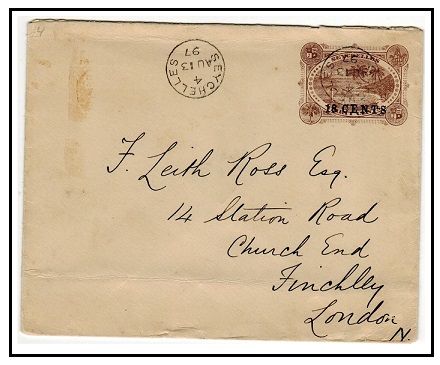 SEYCHELLES
4
AU 13
97
18 CENTS
F. Leith Ross Esq.
14 Station Road
Church End
Finchley
London
N.